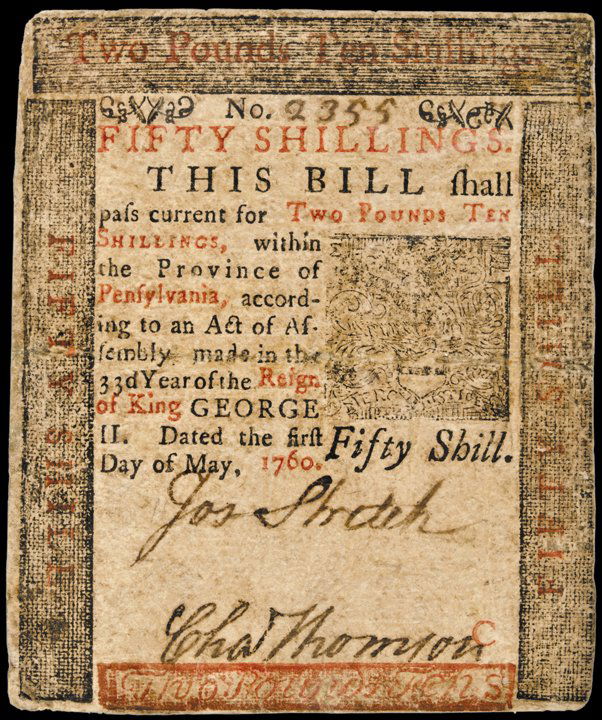 Two Pounds Ten Shillings.
No. 2355
FIFTY SHILLINGS.
THIS BILL ſhall
paſs current for Two Pounds Ten
Shillings, within
the Province of
Penſylvania, accord-
ing to an Act of Aſ-
ſembly, made in the
33d Year of the Reign
of King GEORGE
II. Dated the firſt
Day of May, 1760.
Fifty Shill.
FIFTY SHILL
FIFTY SHILL
Jos Stretch
Cha Thomson
C